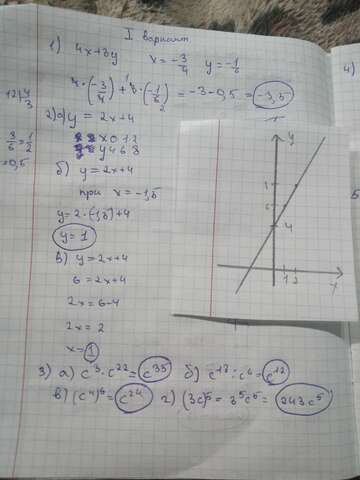 I вариант
1) 4x+3y x = -3/4 y = -1/6
4·(-3/4)+3·(-1/6) = -3-0,5 = -3,5
12|4
3
3/6 = 1/2
=0,5
2) а) y = 2x+4
x 0 1 2
y 4 6 8
б) y = 2x+4
при x = -1,5
y = 2·(-1,5)+4
y = 1
в) y = 2x+4
6 = 2x+4
2x = 6-4
2x = 2
x = 1
3) а) c³·c²² = c³⁵ б) c¹⁸:c⁶ = c¹²
в) (c⁴)⁶ = c²⁴ г) (3c)⁵ = 3⁵c⁵ = 243c⁵
y
4
1 2
x
4)